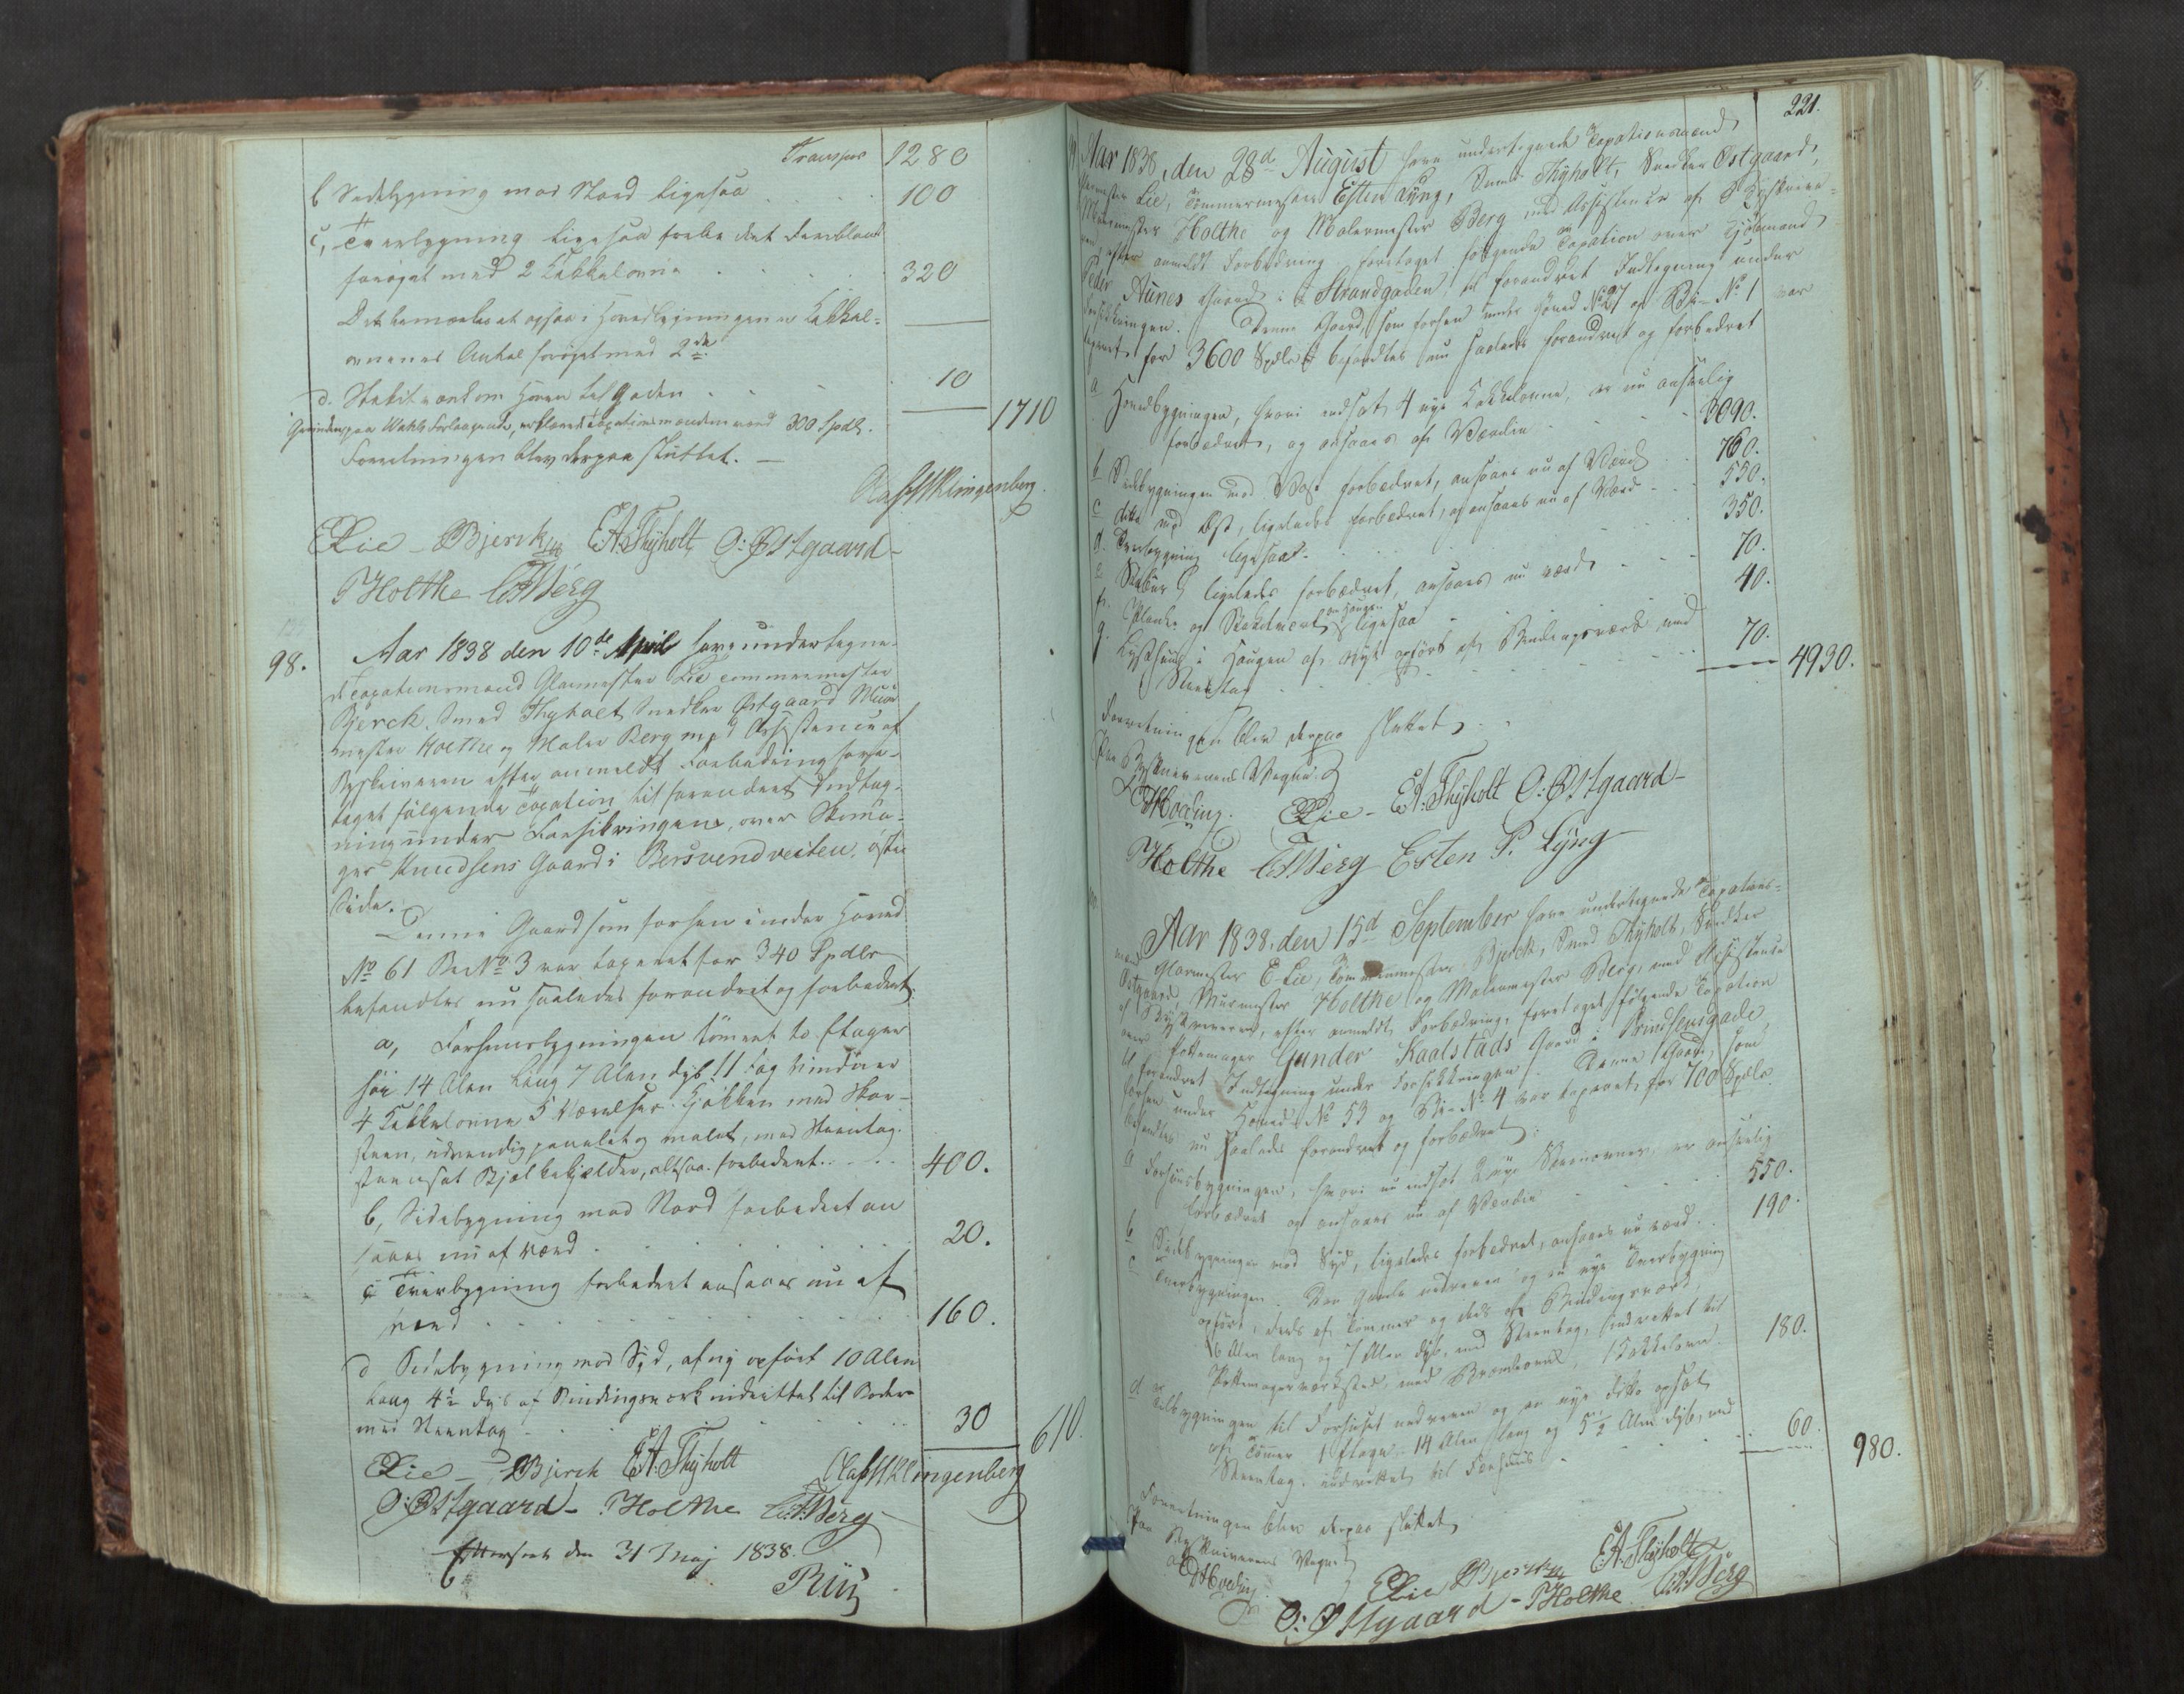 Transport 1280
b Sidebygning mod Nord ligesaa 100
c, Tverbygning ligesaa forbedret deriblant
forøget med 2 Kakkelovne 320
Det bemærkes at ogsaa i Hovedbygningen er Kakkel-
ovnenes Antal forøget med 2de
d. Stakitværk om Haven til Gaden 10
Grunden paa Wahls Forlangende, erklæredes Taxationsmændene værd 300 Spdlr. 1710
Forretningen blev derpaa sluttet. —
Olaf H Klingenberg
E Lie - Bjerck E.A. Thyholt O: Østgaard -
Holthe Berg
98. Aar 1838 den 10de April have undertegne-
de Taxationsmænd Glarmester Lie Tømmermester
Bjerck. Smed Thyholt Snedker Østgaard Muur
mester Holthe og Maler Berg med Assistence af
Byskriveren efter anmeldt Forbedring fore-
taget følgende Taxation til forandret Indteg-
ning under Forsikringen, over Skoma-
ger Knudsens Gaard i Bersvendveiten, østre
Side.
Denne Gaard som forhen under Hoved
No 61 Bi No 3 var taxeret for 340 Spdlr
befandtes nu saaledes forandret og forbedret:
a, Forhuusbygningen tømret to Etager
høi 14 Alen lang 7 Alen dyb 11 Fag Vinduer
4 Kakkelovne 5 Værelser. Kjøkken med Skor-
steen, udvendig panelet og malet, med Steentag.
steensat Bjelkekjelder, altsaa forbedret. 400.
b, Sidebygning mod Nord forbedret an
sees nu af værd 20.
c Tverbygning forbedret ansees nu af
værd 160.
d Sidebygning mod Syd, af ny opført 10 Alen
lang 4½ dyb af Bindingsverk indrettet til Boder
med Steentag 30 610.
E Lie - Bjerck E.A. Thyholt Olaf H Klingenberg
O: Østgaard - Holthe Berg
Efterseet den 31 Maj 1838.
221.
Aar 1838, den 28d August have undertegnede Taxationsmænd
Glarmester Lie, Tømmermester Esten Lyng, Smed Thyholt, Snedker Østgaard,
Muurmester Holthe og Malermester Berg med Assistence af Byskrive-
ren, efter anmeldt Forbedring foretaget følgende Taxation over Kjøbmand
Peder Aunes Gaard i Strandgaden, til forandret Indtegning under
Forsikringen. Denne Gaard som forhen under Hoved No 27 og Bi-No 1 var
taxeret for 3600 Spdlr befandtes nu saaledes forandret og forbedret
a Hovedbygningen, hvori indsat 4 nye Kakkelovne, er nu anseelig
forbedret, og ansees af Værdie 3090.
b Sidebygningen mod Vest forbedret, ansees nu af Værd 760.
c ditto mod Øst, ligeledes forbedret, og ansees nu af Værd 550.
d. Tverbygning ligesaa 350.
e Stabur ligeledes forbedret, ansees nu værd 70.
f. Planke og Stakitværk om Haugen ligesaa 40.
g. Lysthuus i Haugen af Nyt opført af Bindingsværk med
Steentag 70. 4930.
Forretningen blev derpaa sluttet
Paa Byskriverens Vegne
Hveding. E Lie - E.A. Thyholt O: Østgaard -
Holthe Berg Esten P. Lyng
Aar 1838, den 15d September have undertegnede Taxations-
mænd Glarmester E Lie, Tømmermester Bjerck, Smed Thyholt, Snedker
Østgaard, Muurmester Holthe og Malermester Berg, med Assistence
af Byskriveren, efter anmeldt Forbedring, foretaget følgende Taxation
over Pottemager Gunder Kaalstads Gaard i Prindsensgade,
til forandret Indtegning under Forsikkringen. Denne Gaard, som
forhen under Hoved No 53 og Bi-No 4 var taxeret for 700 Spdlr
befandtes nu saaledes forandret og forbedret:
a Forhuusbygningen, hvori nu indsat nye Steenovne, er anseelig
forbedret og ansees nu af Værdie 550.
b Sidebygningen mod Syd, ligeledes forbedret, ansees nu værd. 190.
c Tverbygningen. Den gamle nedreven og en nye Tverbygning
opført, deels af Tømmer og deels af Bindingsværk,
16 Alen lang og 7 Alen dyb, med Steentag, indrettet til
Pottemagerværksted, med Brændeovn, 1 Kakkelovn. 180.
d Tilbygningen til Forhuset nedreven og en nye ditto opsat
af Tømer 1 Etage 14 Alen lang og 5½ Alen dyb, med
Steentag. indrettet til Fæehuus 60. 980.
Forretningen blev derpaa sluttet
Paa Byskriverens Vegne
Hveding E Lie Bjerck E.A. Thyholt
O: Østgaard - Holthe Berg